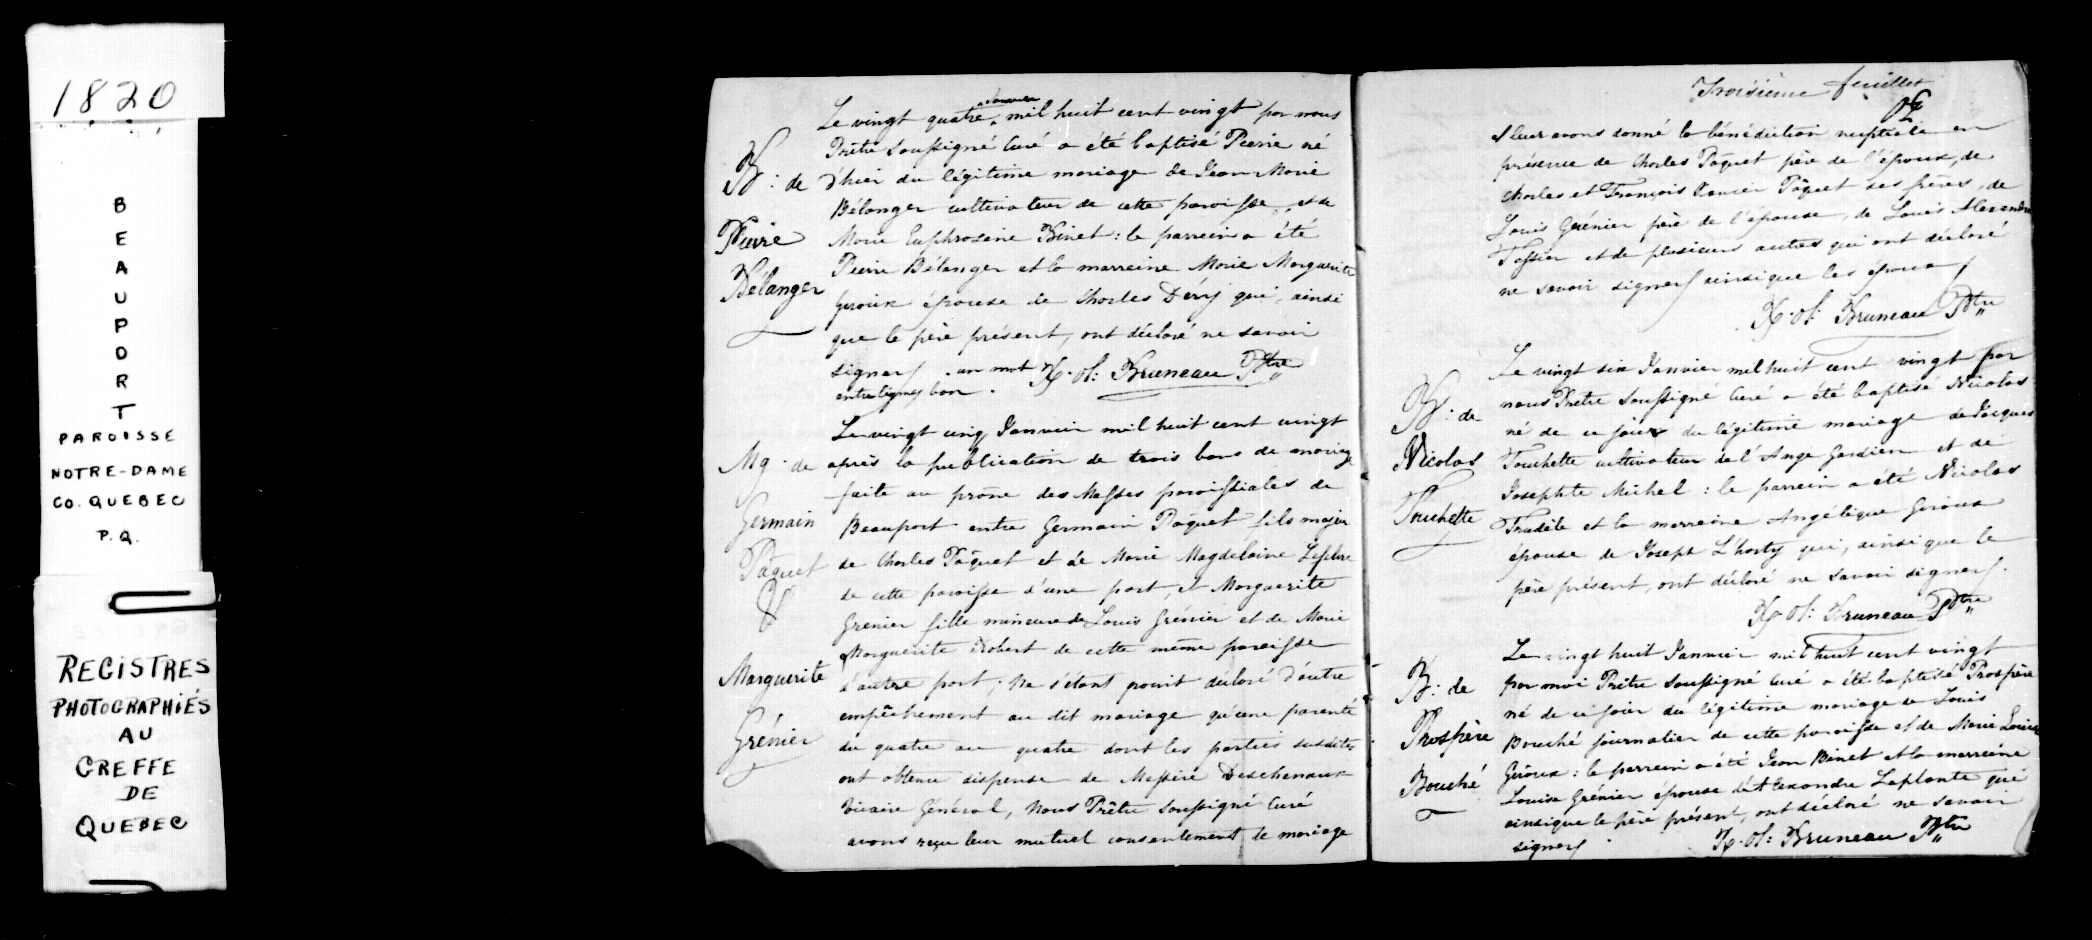 1820
BEAUPORT
PAROISSE
NOTRE-DAME
CO. QUEBEC
P.Q.
REGISTRES
PHOTOGRAPHIÉS
AU
GREFFE
DE
QUEBEC
B: de
Pierre
Bélanger
Janvier
Le vingt quatre, mil huit cent vingt par nous
Prêtre Soussigné Curé a été baptisé Pierre né
d'hier du légitime mariage de Jean Marie
Bélanger cultivateur de cette paroisse, et de
Marie Euphrosine Binet: le parrein a été
Pierre Bélanger et la marreine Marie Marguerite
Giroux épouse de Charles Déry qui, ainsi
que le père présent, ont déclaré ne savoir
signer . un mot
entrelignes bon . Bruneau Ptre
Mg. de
Germain
Pâquet
&
Marguerite
Grénier
Le vingt cinq Janvier mil huit cent vingt
après la publication de trois bans de mariage
faite au prône des Messes paroissiales de
Beauport entre Germain Pâquet fils majeur
de Charles Pâquet et de Marie Magdelaine
de cette paroisse d'une part, et Marguerite
Grenier fille mineure de Louis Grénier et de Marie
Marguerite Robert de cette même paroisse
d'autre part; Ne s'étant point déclaré d'autre
empêchement au dit mariage qu'une parenté
du quatre au quatre dont les parties susdites
ont obtenu dispense de Messire Deschenaux
Vicaire Général, Nous Prêtre Soussigné Curé
avons reçu leur mutuel consentement de mariage
Troisième feuillet
& leur avons donné la bénédiction nuptiale en
présence de Charles Pâquet père de l'époux, de
Charles et François Pâquet ses frères, de
Louis Grénier père de l'épouse, de Louis Alexandre
Tessier et de plusieurs autres qui ont déclaré
ne savoir signer ainsi que les époux
Bruneau Ptre
B: de
Nicolas
Touchette
Le vingt six Janvier mil huit cent vingt par
nous Prêtre Soussigné Curé a été baptisé Nicolas
né de ce jour du légitime mariage de Jacques
Touchette cultivateur de l'Ange Gardien et de
Josephte Michel: le parrein a été Nicolas
Trudèle et la marreine Angélique Giroux
épouse de Joseph L'horty qui, ainsi que le
père présent, ont déclaré ne savoir signer.
Bruneau Ptre
B: de
Prospère
Bouché
Le vingt huit Janvier mil huit cent vingt
par moi Prêtre Soussigné Curé a été baptisé Prospère
né de ce jour du légitime mariage de Louis
Bouché journalier de cette paroisse et de Marie Louise
Giroux: le parrein a été Jean Binet et la marreine
Louise Grénier épouse d'Alexandre Laplante qui
ainsi que le père présent, ont déclaré ne savoir
signer . Bruneau Ptre